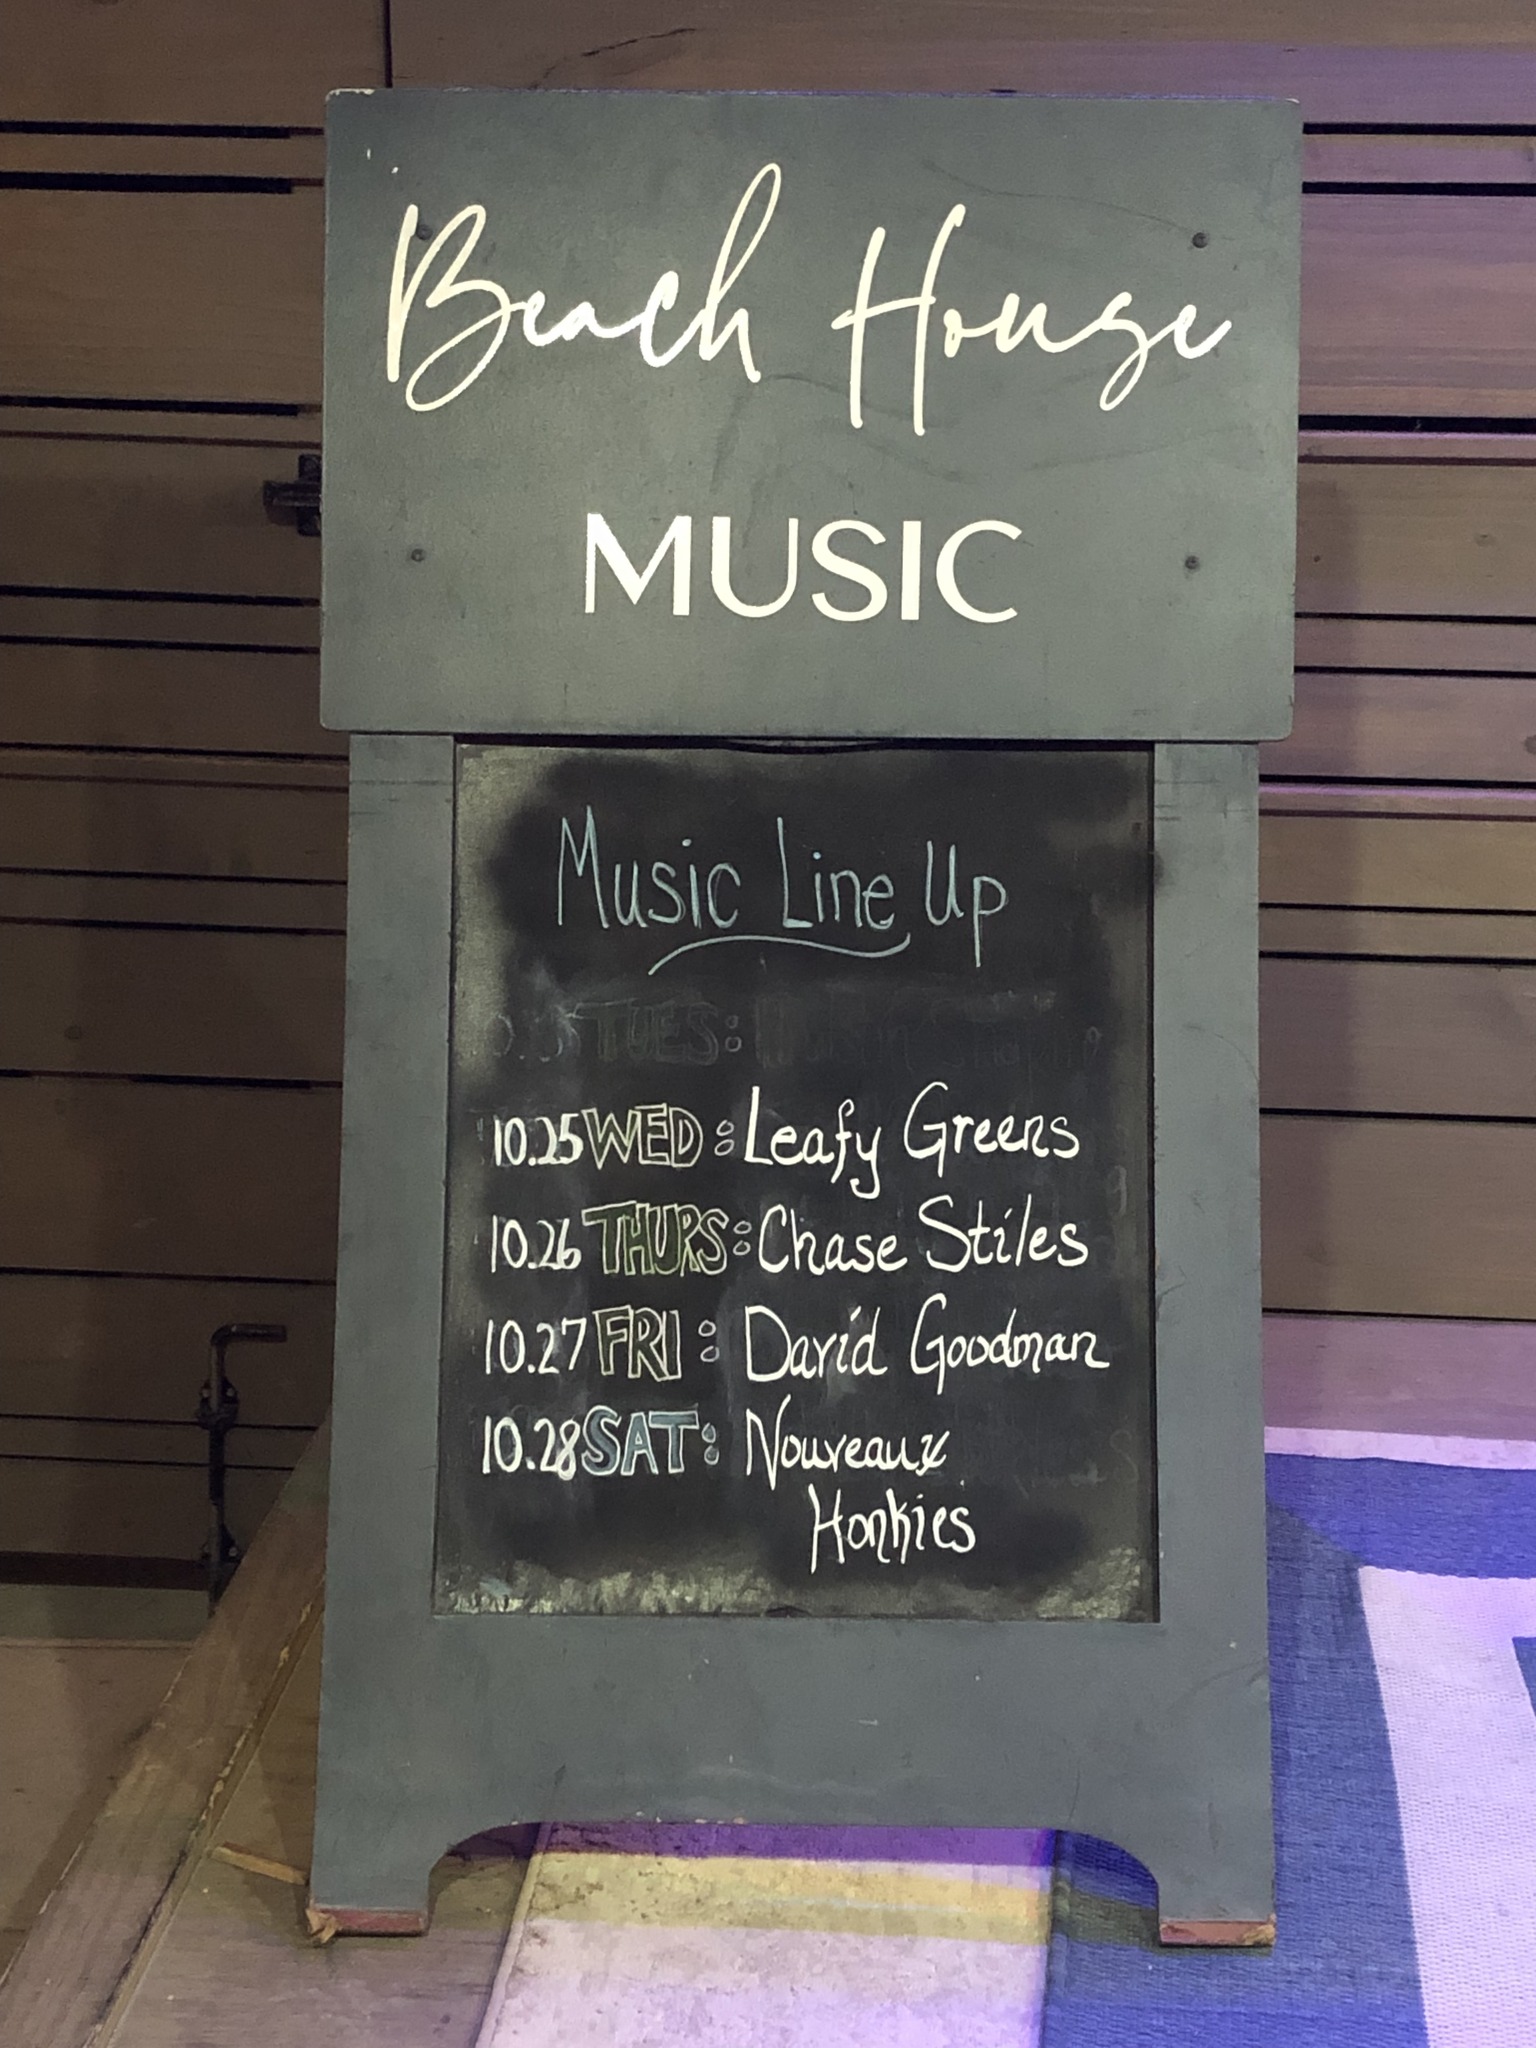 Beach House
MUSIC
Music Line Up
TUES:
10.25 WED: Leafy Greens
10.26 THURS: Chase Stiles
10.27 FRI: David Goodman
10.28 SAT: Nouveaux
Honkies